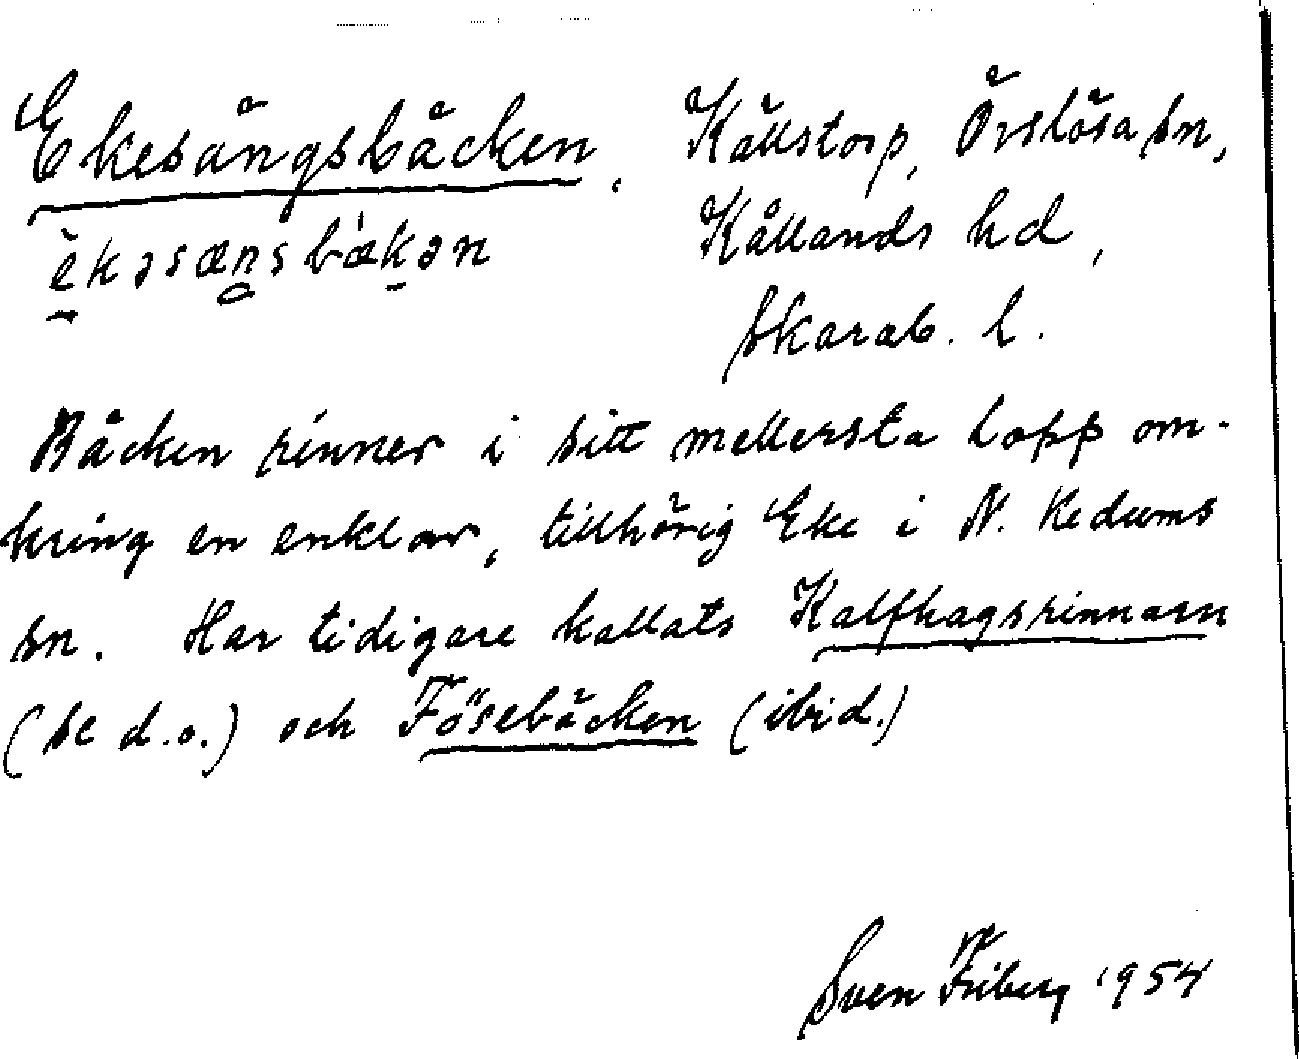 Ekesängsbäcken, Källstorp, Örslösa sn,
èkəsæŋsbækən Kållands hd,
Skarab. l.
Bäcken rinner i sitt mellersta lopp om-
kring en enklav, tillhörig Eke i N. Kedums
sn. Har tidigare kallats Kalfhagsrinnarn
(se d.o.) och Fösebäcken (ibid.)
Sven Friberg 1954